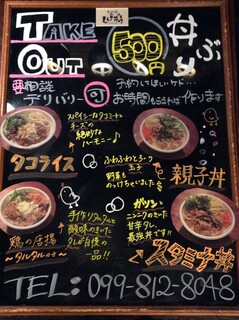 TAKE OUT
500円
丼ぶ
要相談
デリバリー可
予約してほしいケド…
お時間もらえれば作ります
スパイシーなタコミートと
チーズの
絶妙な
ハーモニー♪
タコライス
ふわふわとろーり
玉子
野菜も
のっけちゃいました
親子丼
鶏の居場
〜タルタルのせ〜
手作りタルタルと
酸味のきいた
タレが自慢の
一品!!
ガツン
ニンニクのきいた
甘辛タレ
最強丼です!!
スタミナ丼
TEL:099-812-8048